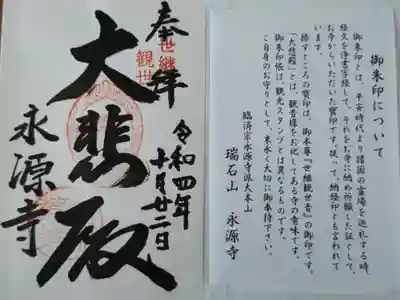 奉拝
世継
観世
大悲殿
令和四年
十月廿二日
永源寺
御朱印について
御朱印とは、平安時代より諸国の霊場を巡礼する時、
経文を浄書写経して、それをお寺に納め祈願した証として、
お寺からいただいた宝印です。従って、納経印とも言われて
います。
捺すところの宝印は、御本尊『世継観世音』の御印です。
「大悲殿」とは、観音様をお祀りしてある寺の意味です。
御朱印帳は、観光スタンプとは異なるものです。
ご自身のお守りとして、末永く大切に御奉持下さい。
臨済宗永源寺派大本山
瑞石山 永源寺